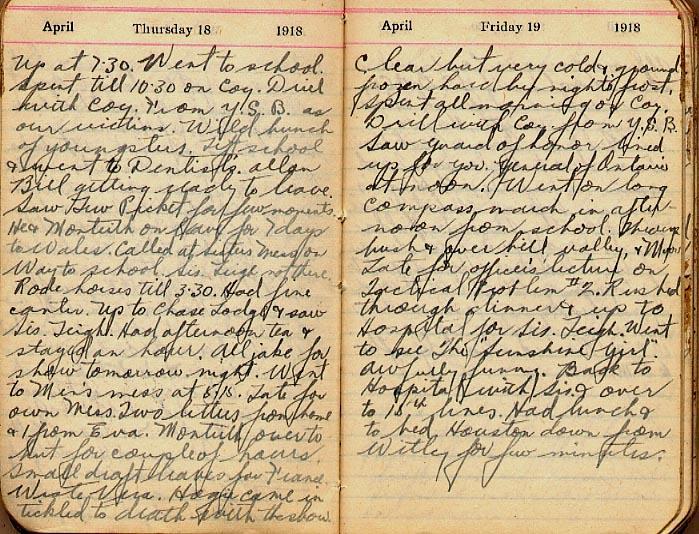 April Thursday 18 1918
Up at 7:30. Went to school.
Spent till 10:30 on Coy. Drill
with Coy. from Y.S.B. as
our victims. Wild bunch
of youngsters. Left school
& went to Dentists. Allan
Bell getting ready to leave.
Saw Geo Pirket for few moments.
He & Monteith on leave for 7 days
to Wales. Called at Sisters Mess on
Way to school. Sis. Leigh not there.
Rode horses till 3:30. Had fine
canter. Up to Chase Lodge & saw
Sis. Leigh. Had afternoon tea &
stayed an hour. All jake for
show tomorrow night. Went
to Men's mess at 5:15. Late for
own Mess. Two letters from home
& 1 from Eva. Monteith over to
hut for couple of hours.
Small draft leaves for France.
Wrote Vera. Hogg came in
tickled to death with the show.
April Friday 19 1918
Clear but very cold & ground
frozen hard by nights frost.
Spent all morning on Coy.
Drill with Coy from Y.S.B.
Saw guard of honor lined
up for Gov. General of Ontario
at noon. Went on long
compass march in after-
noon from school. Through
bush & over hill, valley, & Moor
Late for officers lecture on
Tactical Problem #2. Rushed
through dinner & up to
Hospital for Sis. Leigh. Went
to see The "Sunshine Girl"
awfully funny. Back to
Hospital with Sis. & over
to 18th lines. Had lunch &
to bed. Houston down from
Witley for few minutes.